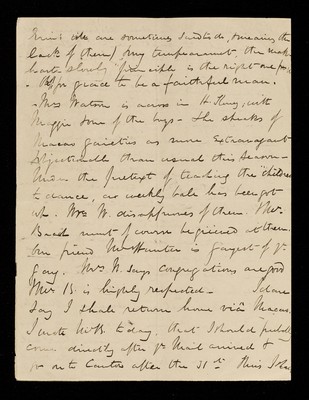 are sometimes
lack of them) my temperament, the
slowly principle is the right one for
grace to be a faithful man.
Mrs Watson is across in H. Kong with
Maggie some of the boys - She speaks of
Macao gaieties as more Extravagant
objectionable than usual this season -
Under the pretext of teaching the "children"
to dance, a weekly ball has been got
up. Mrs W. disapproves of them. Mrs
Beach must of course be grieved at them
Our friend Mrs Hunter is gayest of ye
gay. Mrs W. says congregations are good
Mrs B. is highly respected - I dare
say I shall return home viâ Macao.
I wrote Mr B. to day, that I should
come directly after ye Mail arrived &
go on to Canton after the 31st This